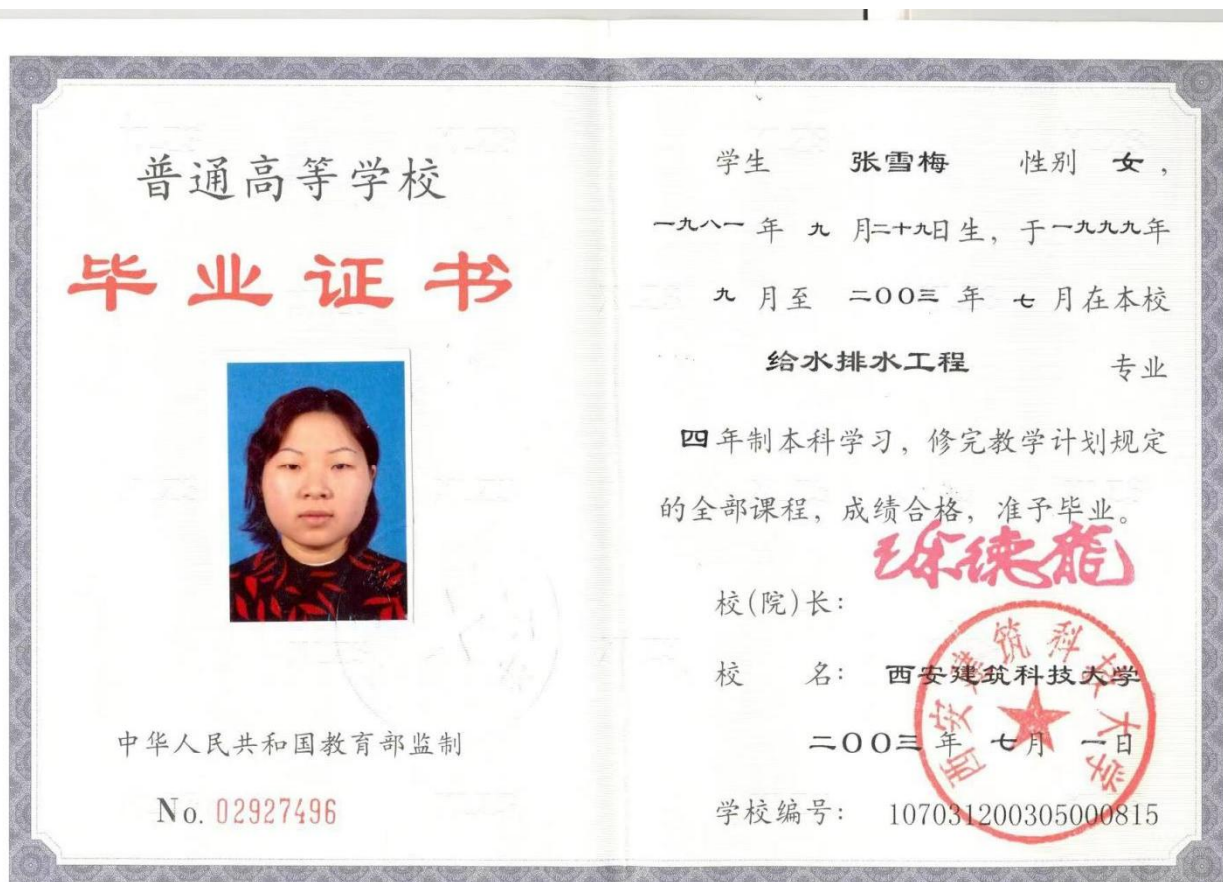 普通高等学校
毕业证书
中华人民共和国教育部监制
No. 02927496
学生 张雪梅 性别 女，
一九八一年 九 月二十九日生，于一九九九年
九 月至 二〇〇三 年 七 月在本校
给水排水工程 专业
四年制本科学习，修完教学计划规定
的全部课程，成绩合格，准予毕业。
徐德龙
校(院)长：
校 名： 西安建筑科技大学
西安建筑科技大学
二〇〇三 年 七月 一日
学校编号： 107031200305000815